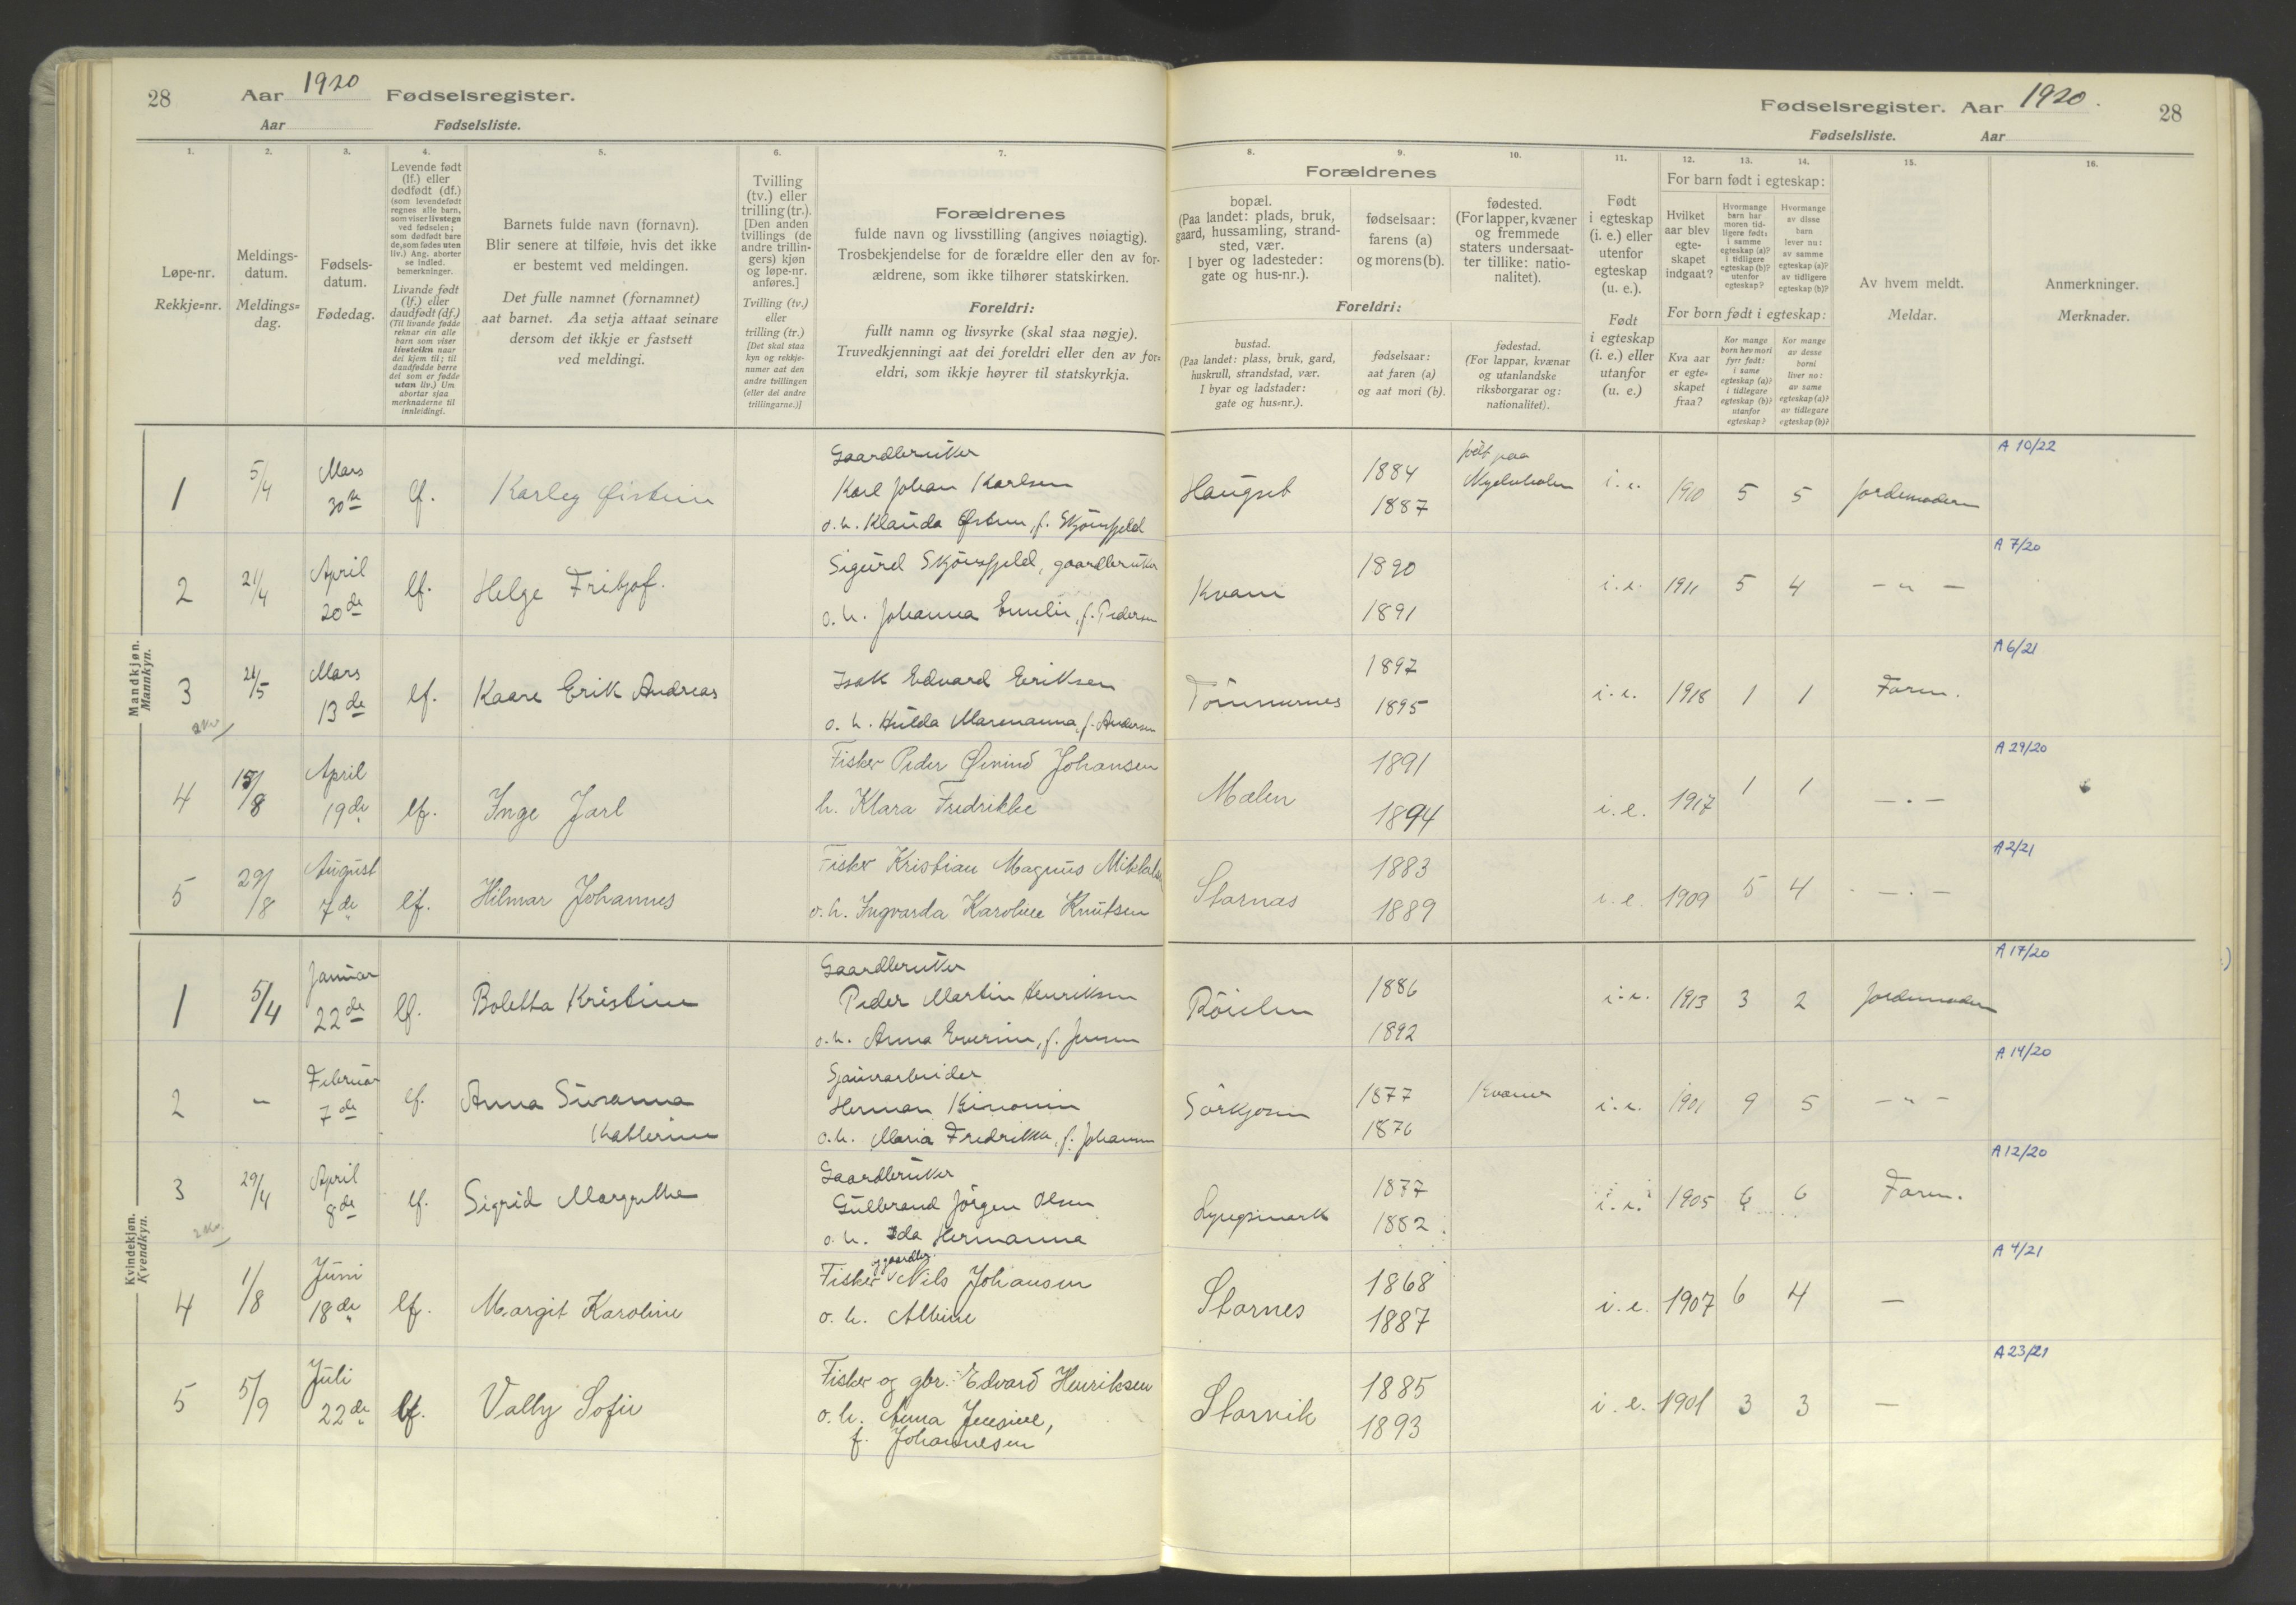 28 Aar 1920 Fødselsregister.
Aar Fødselsliste.
1. 2. 3. 4. 5. 6. 7.
Løpe-nr.
Rekkje=nr.
Meldings-
datum.
Meldings=
dag.
Fødsels-
datum.
Fødedag.
Levende født
(lf.) eller
dødfødt (df.)
(som levendefødt
regnes alle barn,
som viser livstegn
ved fødselen;
som dødfødt bare
de, som fødes uten
liv.) Ang. aborter
se indled.
bemerkninger.
Livande født
(lf.) eller
daudfødt (df.)
(Til livande fødde
reknar ein alle
barn som viser
livsteikn naar
dei kjem til; til
daudfødde berre
dei som er fødde
utan liv.) Um
abortar sjaa
merknaderne til
innleidingi.
Barnets fulde navn (fornavn).
Blir senere at tilføie, hvis det ikke
er bestemt ved meldingen.
Det fulle namnet (fornamnet)
aat barnet. Aa setja attaat seinare
dersom det ikkje er fastsett
ved meldingi.
Tvilling
(tv.) eller
trilling (tr.).
[Den anden
tvillings (de
andre trillin-
gers) kjøn
og løpe-nr.
anføres.]
Tvilling (tv.)
eller
trilling (tr.)
[Det skal staa
kyn og rekkje-
numer aat den
andre tvillingen
(eller dei andre
trillingarne.)]
Forældrenes
fulde navn og livsstilling (angives nøiagtig).
Trosbekjendelse for de forældre eller den av for-
ældrene, som ikke tilhører statskirken.
Foreldri:
fullt namn og livsyrke (skal staa nøgje).
Truvedkjenningi aat dei foreldri eller den av for=
eldri, som ikkje høyrer til statskyrkja.
Mandkjøn.
Mannkyn.
1 5/4 Mars 30te lf. Karley Øistein
Gaardbruker
Karl Johan Karlsen
o. h. Klauda Østrun, f. Skjönsfjeld
2 21/4 April 20de lf. Helge Fritjof.
Sigurd Skjönsfjeld, gaardbruker
o. h. Johanna Emelie, f. Pedersen
3 21/5 Mars 13de lf. Kaare Erik Andreas
Isak Edvard Eriksen
o. h. Hulda Marenanna, f. Andersen
4 15/8 April 19de lf. Inge Jarl
Fisker Peder Öivind Johansen
h. Klara Fredrikke
5 29/8 August 7de lf. Hilmar Johannes
Fisker Kristian Magnus Mikkalsen
o. h. Ingvarda Karoline Knutsen
Kvindekjøn.
Kvendkyn.
1 5/4 Januar 22de lf. Boletta Kristine
Gaardbruker
Peder Martin Henriksen
o. h. Anna Everine, f. Jensen
2 - Februar 7de lf. Anna Susanna
Kathrine
Herman
o. h. Maria Fredrikke, f. Johansen
3 29/4 April 8de lf. Sigrid Margrethe
Gaardbruker
Gulbrand Jörgen Olsen
o. h. Ida Hermanna
4 1/8 Juni 18de lf. Margit Karoline
og gaardbr.
Fisker Nils Johansen
o. h. Albine
5 5/9 Juli 22de lf. Valby Sofie
Fisker og gbr. Edvard Henriksen
o. h. Anna Jensine,
f. Johannesen
Fødselsregister. Aar 1920. 28
Fødselsliste. Aar
8. 9. 10. 11. 12. 13. 14. 15. 16.
Forældrenes
bopæl.
(Paa landet: plads, bruk,
gaard, hussamling, strand-
sted, vær.
I byer og ladesteder:
gate og hus-nr.).
fødselsaar:
farens (a)
og morens (b).
fødested.
(For lapper, kvæner
og fremmede
staters undersaat-
ter tillike: natio-
nalitet).
Foreldri:
bustad.
(Paa landet: plass, bruk, gard,
huskrull, strandstad, vær.
I byar og ladstader:
gate og hus=nr.).
fødselsaar:
aat faren (a)
og aat mori (b).
fødestad.
(For lappar, kvænar
og utanlandske
riksborgarar og:
nationalitet).
Født
i egteskap
(i. e.) eller
utenfor
egteskap
(u. e.).
Født
i egteskap
(i. e.) eller
utanfor
(u. e.)
For barn født i egteskap:
Hvilket
aar blev
egte-
skapet
indgaat?
Hvormange
barn har
moren tid-
ligere født:
i samme
egteskap (a)?
i tidligere
egteskap (b)?
utenfor
egteskap?
Hvormange
av disse
barn
lever nu:
av samme
egteskap (a)?
av tidligere
egteskap (b)?
For born født i egteskap:
Kva aar
er egte=
skapet
fraa?
Kor mange
born hev mori
fyrr født:
i same
egteskap (a)?
i tidlegare
egteskap (b)?
utanfor
egteskap?
Kor mange
av desse
borni
liver no:
av same
egteskap (a)?
av tidlegare
egteskap (b)?
Av hvem meldt.
Meldar.
Anmerkninger.
Merknader.
A 10/22
Haugset 1884 1887 født paa i. e. 1910 5 5 Jordemoderen
A 7/20
Kvam 1890 1891 i. e. 1911 5 4 - " -
A 6/21
Tömmernes 1897 1895 i. e. 1918 1 1 Faren.
A 29/20
Mælen 1891 1894 i. e. 1917 1 1 - . -
A 2/21
Starnas 1883 1889 i. e. 1909 5 4 - . -
A 17/20
Röielen 1886 1892 i. e. 1913 3 2 Jordemoder
A 14/20
Sörkjosen 1877 1876 Kvæner i. e. 1901 9 5 - " -
A 12/20
Lyngsmark 1877 1882 i. e. 1905 6 6 Faren.
A 4/21
Starnes 1868 1887 i. e. 1907 6 4 -
A 23/21
Starvik 1885 1893 i. e. 1901 3 3 -